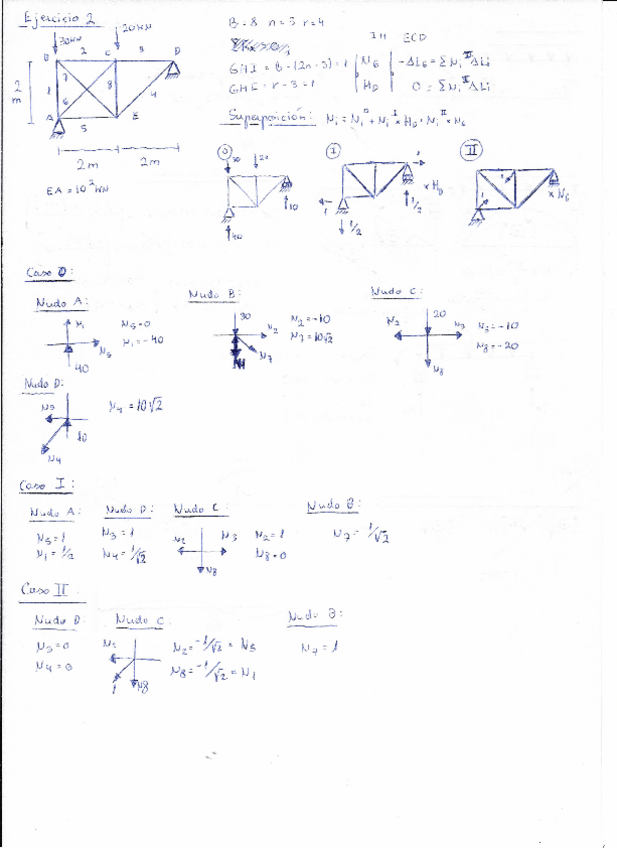 Ejercicio 2
30KN
20KN
B 2 C 3 D
1 7 6 8 4
2 m
A 5 E
2m 2m
EA = 10² KN
B = 8 n = 5 r = 4
IH ECD
GHI = B - (2n - 3) = 1 N6 -ΔL6 = ΣNi^II ΔLi
GHE = r - 3 = 1 HD 0 = ΣNi^I ΔLi
Superposición: Ni = Ni^0 + Ni^I × HD + Ni^II × N6
0 I II
30 20
10
40
1
× HD
1/2
1
1/2
1
1
× N6
Caso 0:
Nudo A:
N1
N5
40
N5 = 0
N1 = -40
Nudo B:
30
N2
N7
N2 = -10
N7 = 10√2
Nudo C:
20
N2
N3
N8
N3 = -10
N8 = -20
Nudo D:
N3
10
N4
N4 = 10√2
Caso I:
Nudo A:
N5 = 1
N1 = 1/2
Nudo D:
N3 = 1
N4 = 1/√2
Nudo C:
N2
N3
N8
N2 = 1
N8 = 0
Nudo B:
N7 = 1/√2
Caso II
Nudo D:
N3 = 0
N4 = 0
Nudo C:
N2
1
N8
N2 = -1/√2 = N5
N8 = -1/√2 = N1
Nudo B:
N7 = 1